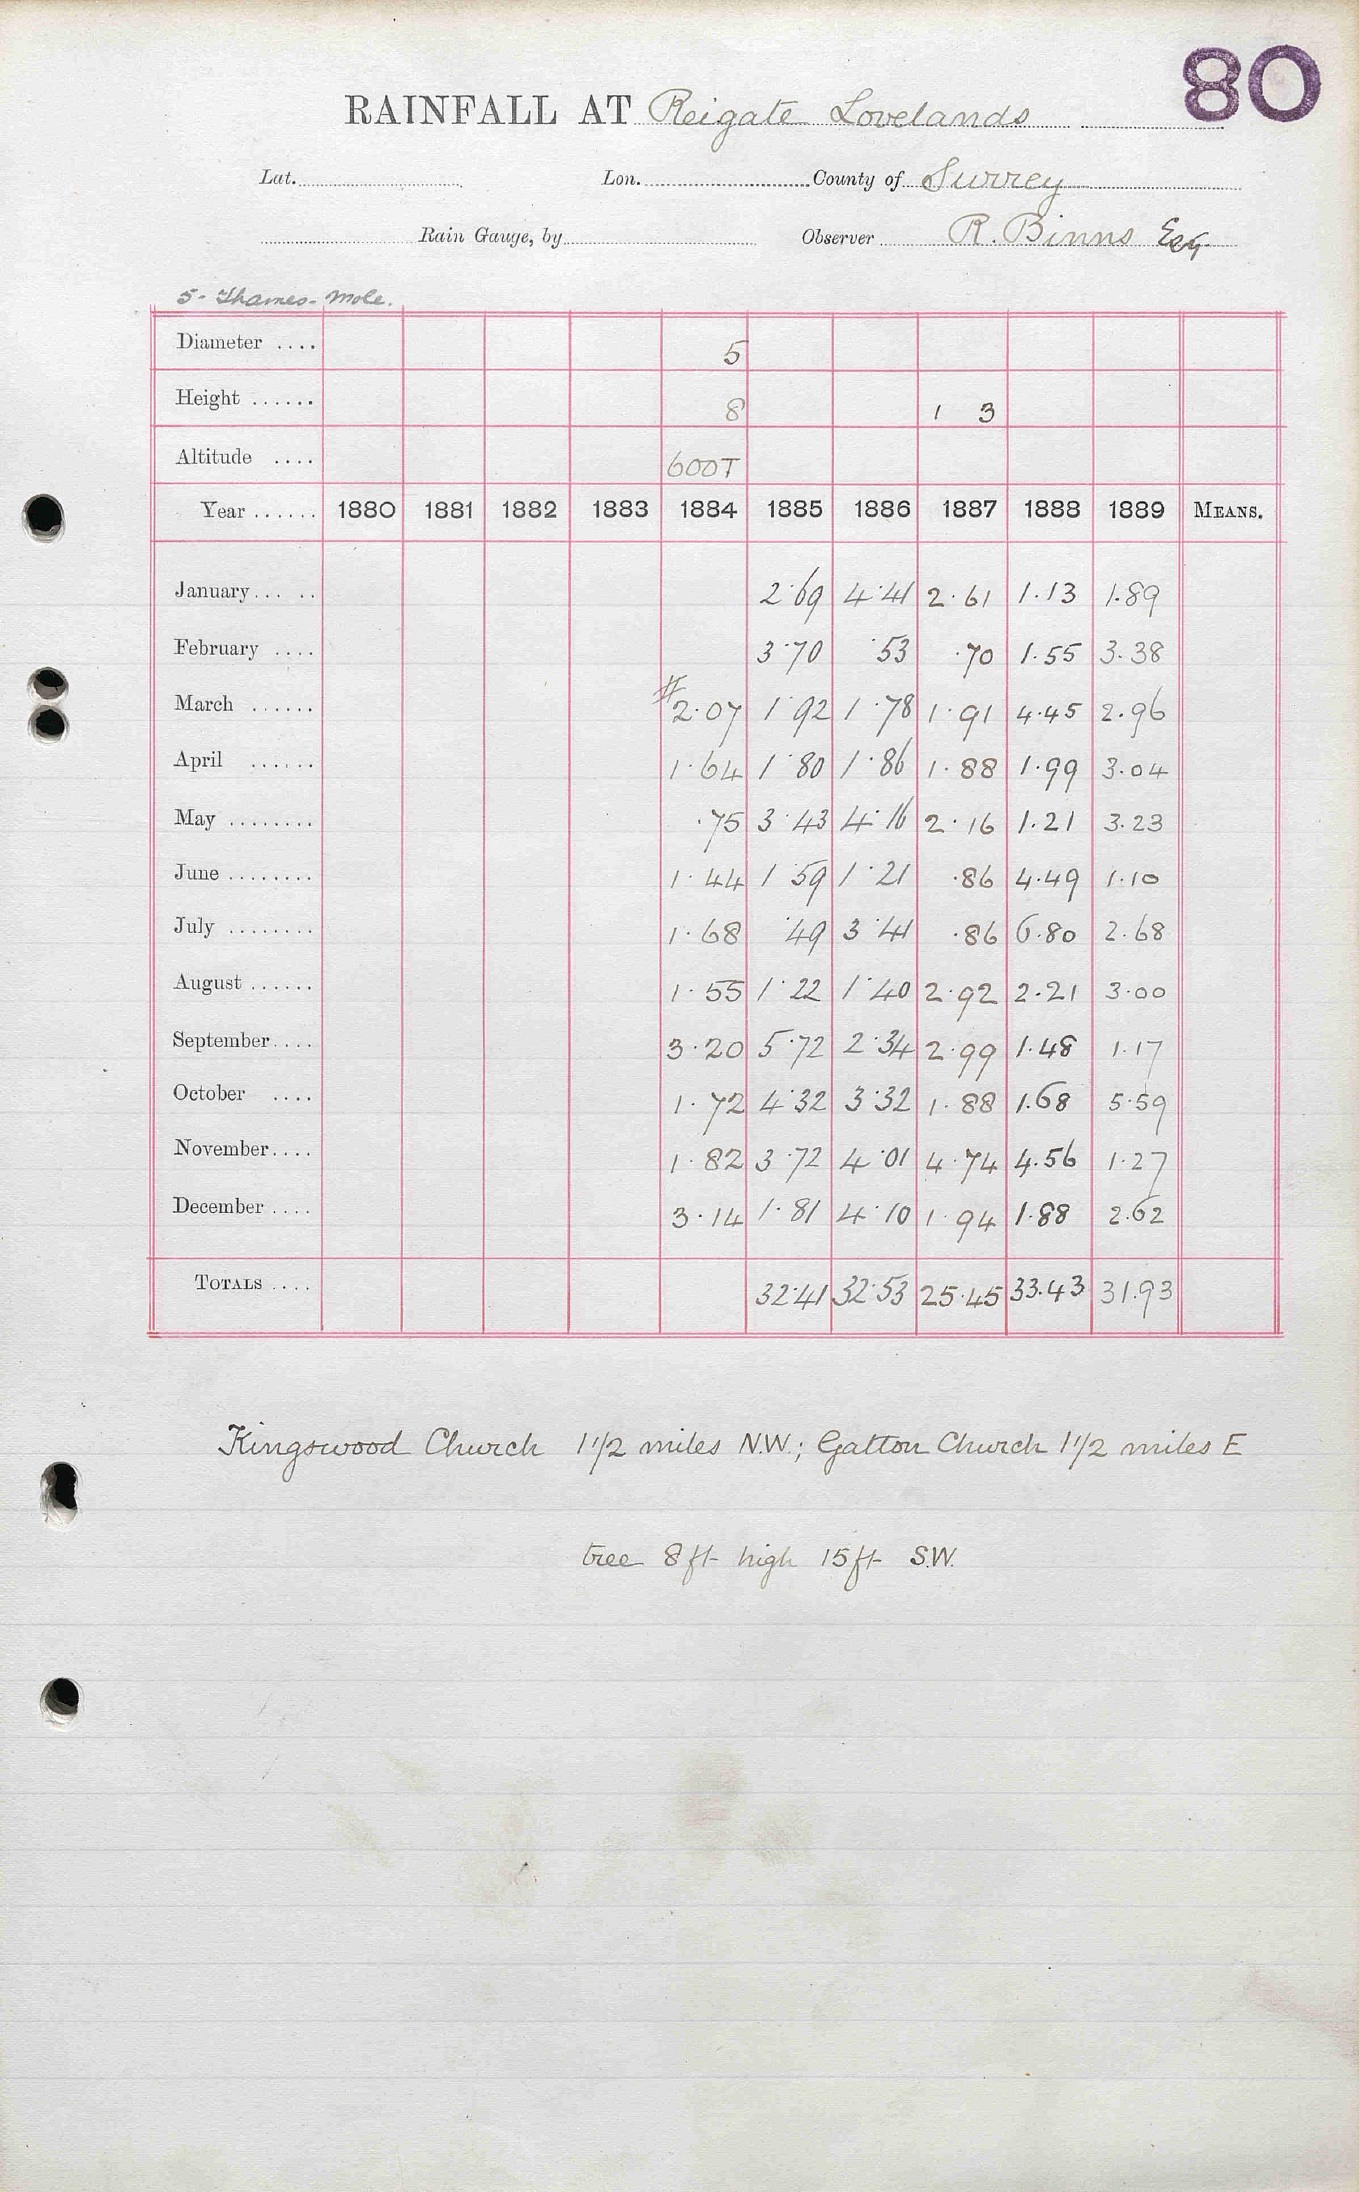 80
RAINFALL AT Reigate Lovelands
Lat. Lon. County of Surrey
Rain Gauge, by Observer R. Binns Esq.
5 - Thames - Mole.
Diameter .... 5
Height ...... 8 1 3
Altitude .... 600T
Year ...... 1880 1881 1882 1883 1884 1885 1886 1887 1888 1889 MEANS.
January ... .. 2.69 4.41 2.61 1.13 1.89
February .... 3.70 .53 .70 1.55 3.38
March ...... #2.07 1.92 1.78 1.91 4.45 2.96
April ...... 1.64 1.80 1.86 1.88 1.99 3.04
May ........ .75 3.43 4.16 2.16 1.21 3.23
June ........ 1.44 1.59 1.21 .86 4.49 1.10
July ........ 1.68 .49 3.41 .86 6.80 2.68
August ...... 1.55 1.22 1.40 2.92 2.21 3.00
September .... 3.20 5.72 2.34 2.99 1.48 1.17
October .... 1.72 4.32 3.32 1.88 1.68 5.59
November .... 1.82 3.72 4.01 4.74 4.56 1.27
December .... 3.14 1.81 4.10 1.94 1.88 2.62
TOTALS .... 32.41 32.53 25.45 33.43 31.93
Kingswood Church 1 1/2 miles N.W.; Gatton Church 1 1/2 miles E
tree 8ft high 15ft S.W.